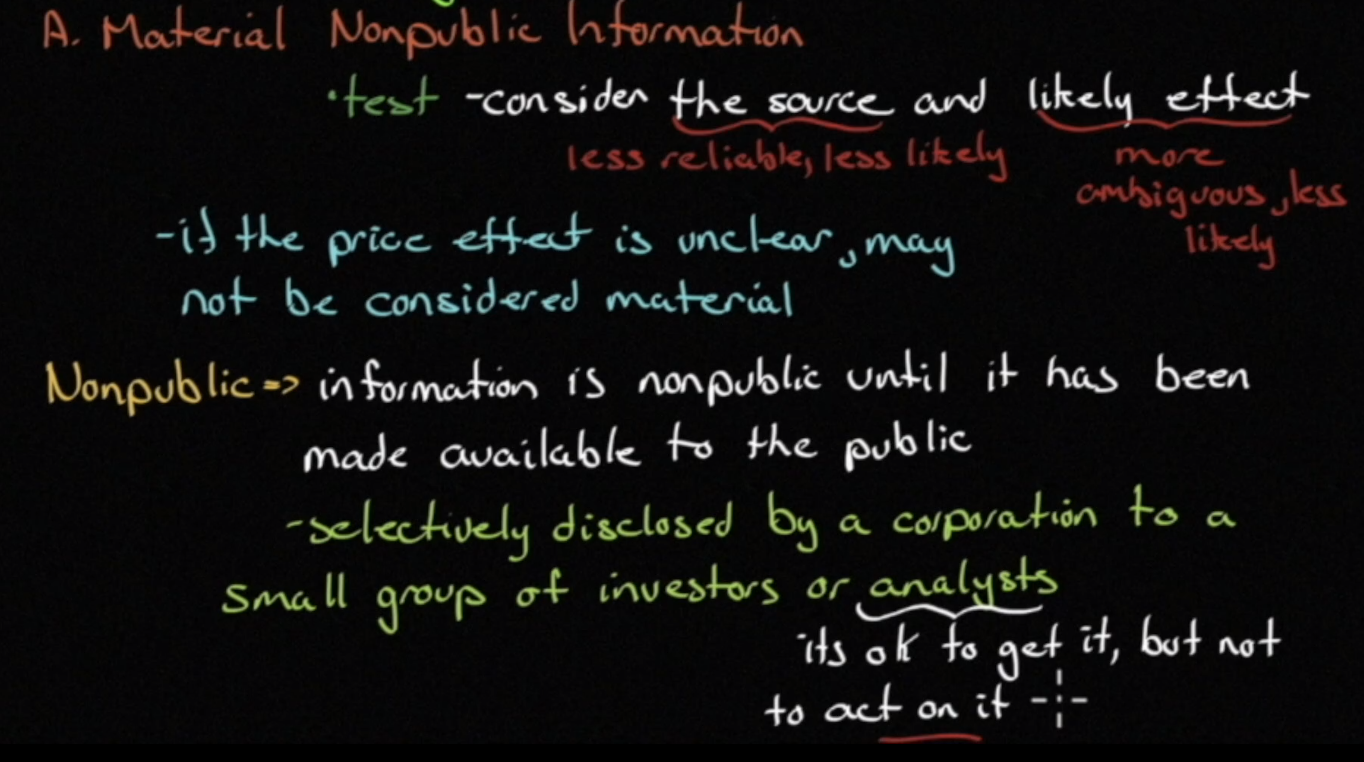 A. Material Nonpublic Information
•test -consider the source and likely effect
less reliable, less likely
more
ambiguous, less
likely
-if the price effect is unclear, may
not be considered material
Nonpublic => information is nonpublic until it has been
made available to the public
-selectively disclosed by a corporation to a
small group of investors or analysts
its ok to get it, but not
to act on it